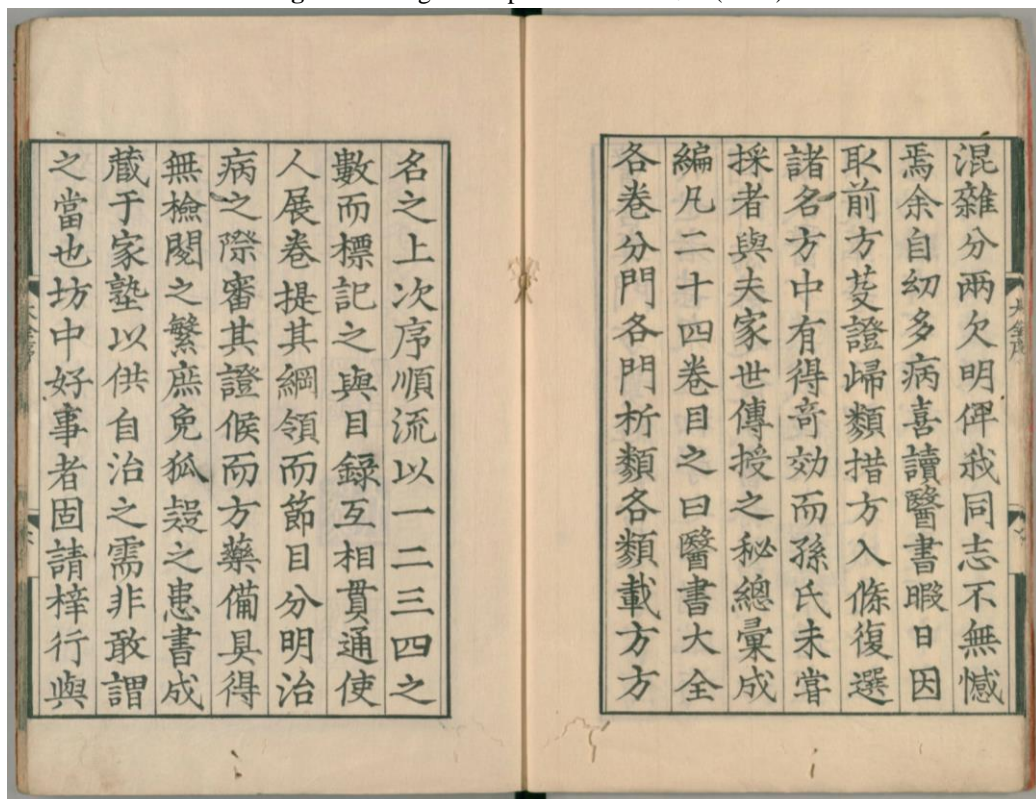 混雜分兩欠明俾我同志不無憾
焉余自幼多病喜讀醫書暇日因
取前方芟證歸類措方入條復選
諸名方中有得奇効而孫氏未嘗
採者與夫家世傳授之秘總彙成
編凡二十四卷目之曰醫書大全
各卷分門各門析類各類載方方
名之上次序順流以一二三四之
數而標記之與目錄互相貫通使
人展卷提其綱領而節目分明治
病之際審其證候而方藥備具得
無檢閱之繁庶免狐疑之患書成
藏于家塾以供自治之需非敢謂
之當也坊中好事者固請梓行與
大全序
大全序